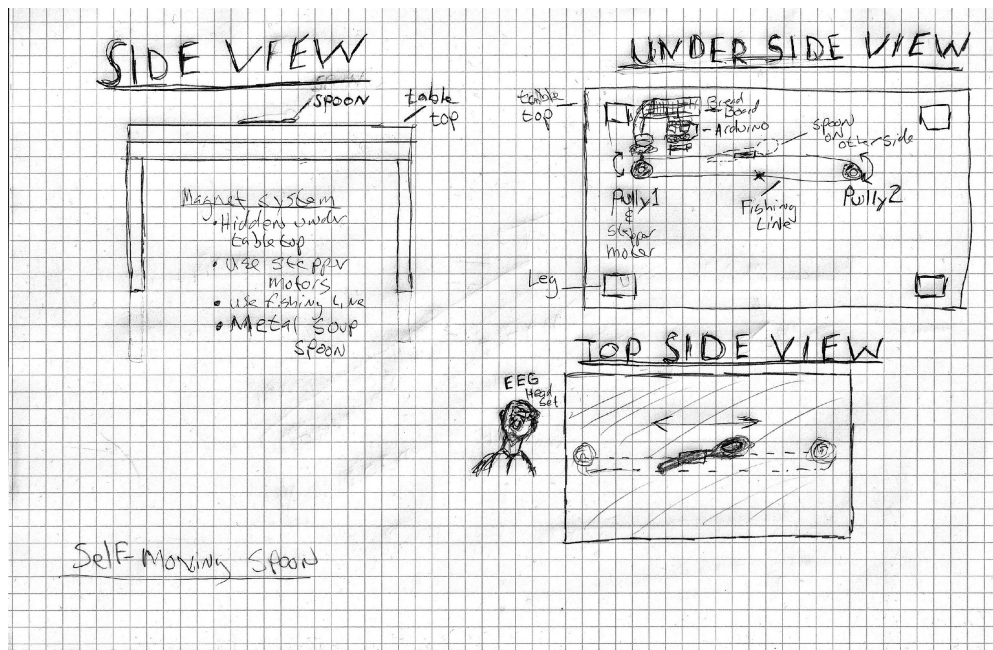 SIDE VIEW
SPOON
table
top
Magnet system
• Hidden under
table top
• Use steppr
motors
• use fishing line
• Metal soup
spoon
Self-moving spoon
UNDER SIDE VIEW
table
top
Bread
Board
Arduino
spoon
on
other side
Pully1
&
stepper
moter
Fishing
Line
Pully2
Leg
TOP SIDE VIEW
EEG
Head
set